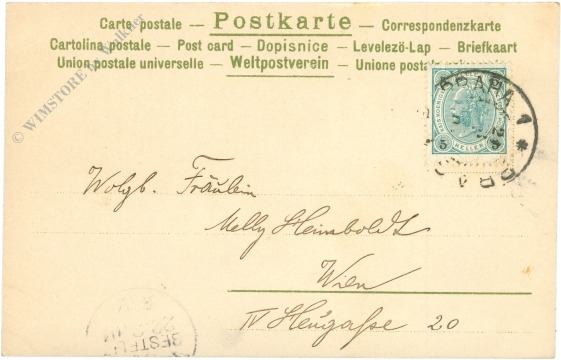 Carte postale — Postkarte — Correspondenzkarte
Cartolina postale — Post card — Dopisnice — Levelező-Lap — Briefkaart
Union postale universelle — Weltpostverein — Unione postale
© WIMSTORE
5 HELLER 5
PRAHA 1
Wolgb. Fräulein
Melly Heimboldt
Wien
IV Heugasse 20
BESTELLT